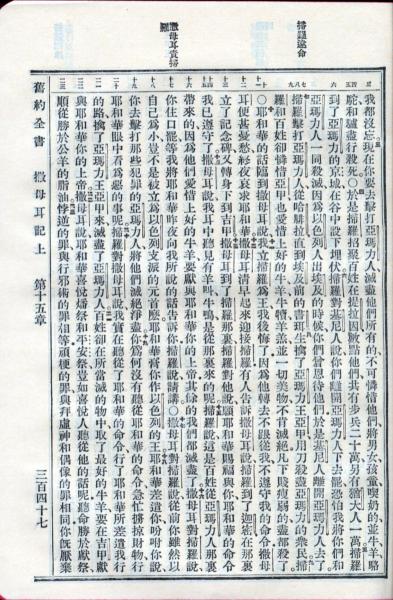 掃羅違命
撒母耳責掃羅
我都沒忘現在你要去擊打亞瑪力人滅盡他們所有的不可憐惜他們將男女孩童喫奶的並牛羊駱
駝和驢盡行殺死○於是掃羅招聚百姓在提拉因數點他們共有步兵二十萬另有猶大人一萬掃羅
到了亞瑪力的京城在谷中設下埋伏掃羅對基尼人說你們離開亞瑪力人下去罷恐怕我將你們和
亞瑪力人一同殺滅因爲以色列人出埃及的時候你們曾恩待他們於是基尼人離開亞瑪力人去了
掃羅擊打亞瑪力人從哈腓拉直到埃及前的書珥生擒了亞瑪力王亞甲用刀殺盡亞瑪力的衆民掃
羅和百姓卻憐惜亞甲也愛惜上好的牛羊牛犢羊羔並一切美物不肯滅絕凡下賤瘦弱的盡都殺了
○耶和華的話臨到撒母耳說我立掃羅爲王我後悔了因爲他轉去不跟從我不遵守我的命令撒母
耳便甚憂愁終夜哀求耶和華撒母耳清早起來迎接掃羅有人告訴撒母耳說掃羅到了迦密在那裏
立了記念碑又轉身下到吉甲撒母耳到了掃羅那裏掃羅對他說願耶和華賜福與你耶和華的命令
我已遵守了撒母耳說我耳中聽見有羊叫牛鳴是從那裏來的呢掃羅說這是百姓從亞瑪力人那裏
帶來的因爲他們愛惜上好的牛羊要獻與耶和華你的上帝其餘的我們都滅盡了撒母耳對掃羅說
你住口罷等我將耶和華昨夜向我所說的話告訴你掃羅說請講○撒母耳對掃羅說從前你雖然以
自己爲小豈不是被立爲以色列支派的元首麽耶和華膏你作以色列的王耶和華差遣你吩咐你說
你去擊打那些犯罪的亞瑪力人將他們滅絕淨盡你爲何沒有聽從耶和華的命令急忙擄掠財物行
耶和華眼中看爲惡的事呢掃羅對撒母耳說我實在聽從了耶和華的命令行了耶和華所差遣我行
的路擒了亞瑪力王亞甲來滅盡了亞瑪力人百姓卻在所當滅的物中取了最好的牛羊要在吉甲獻
與耶和華你的上帝撒母耳說耶和華喜悅燔祭和平安祭豈如喜悅人聽從他的話呢聽命勝於獻祭
順從勝於公羊的脂油悖逆的罪與行邪術的罪相等頑梗的罪與拜虛神和偶像的罪相同你旣厭棄
舊約全書 撒母耳記上 第十五章 三百四十七